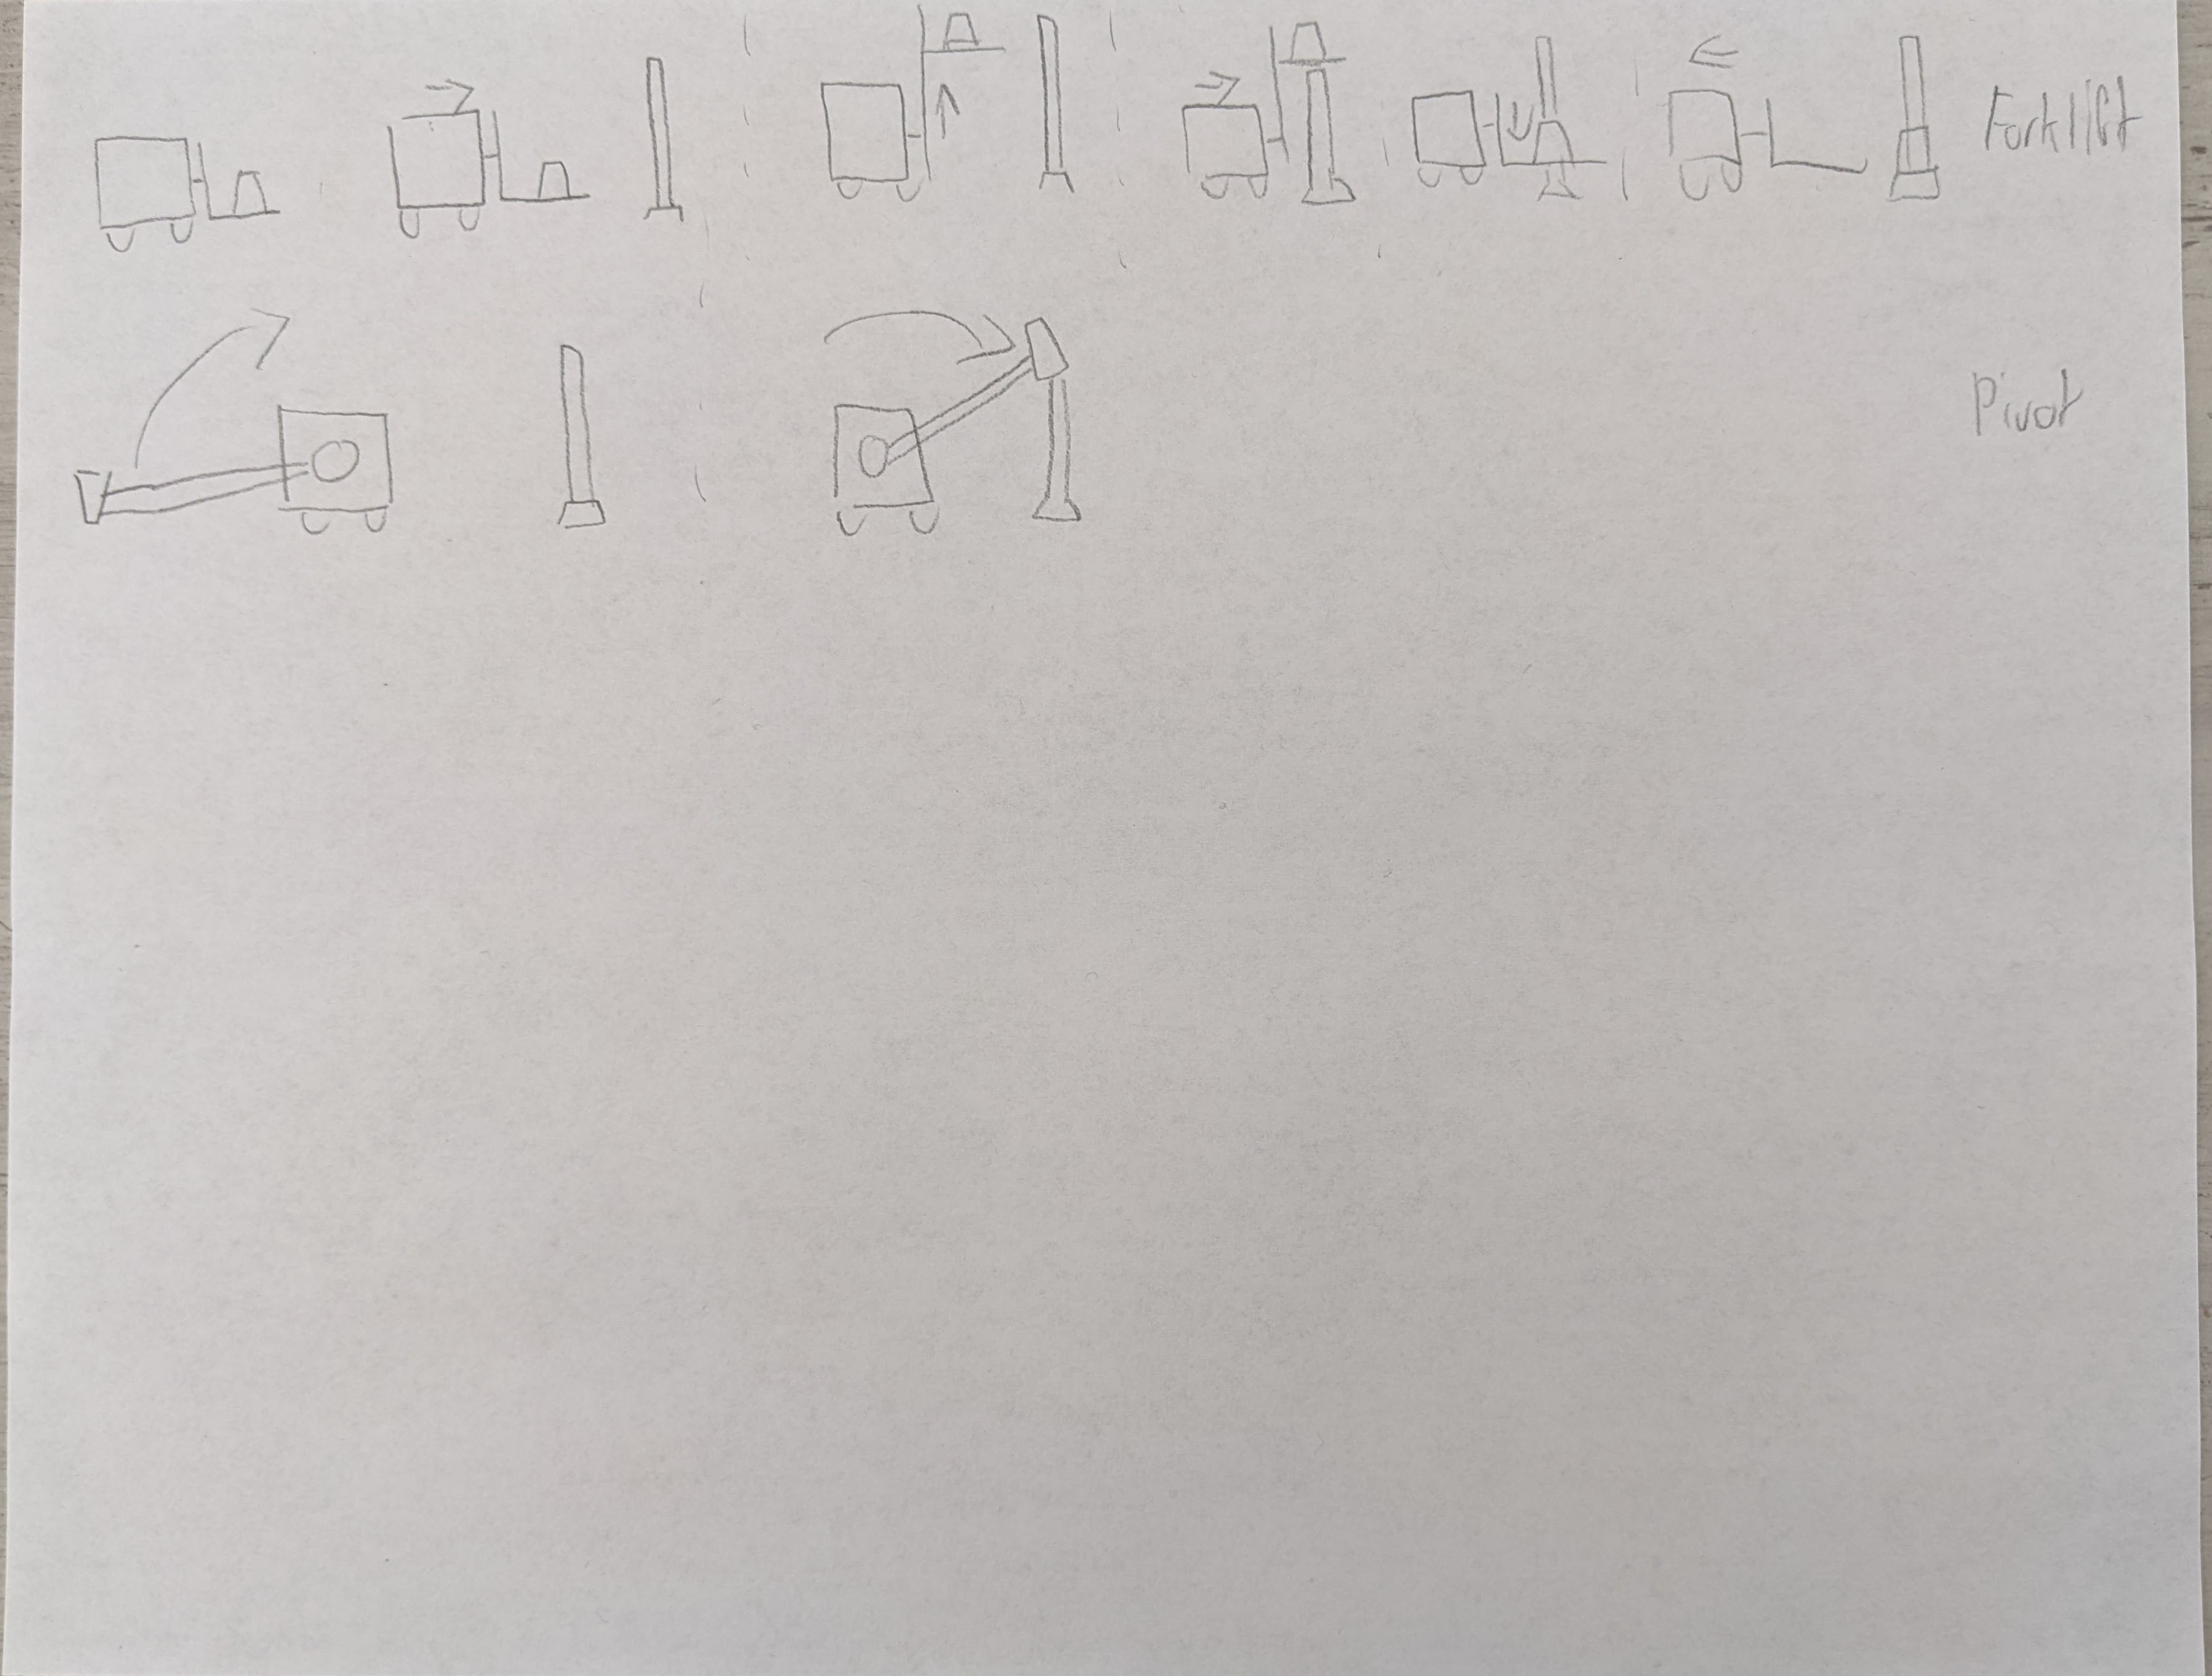 Forklift
Pivot